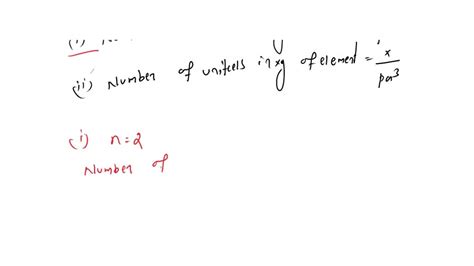 (i)
(ii) Number of unitcells in xg of element = x / ρa³
(i) n=2
Number of